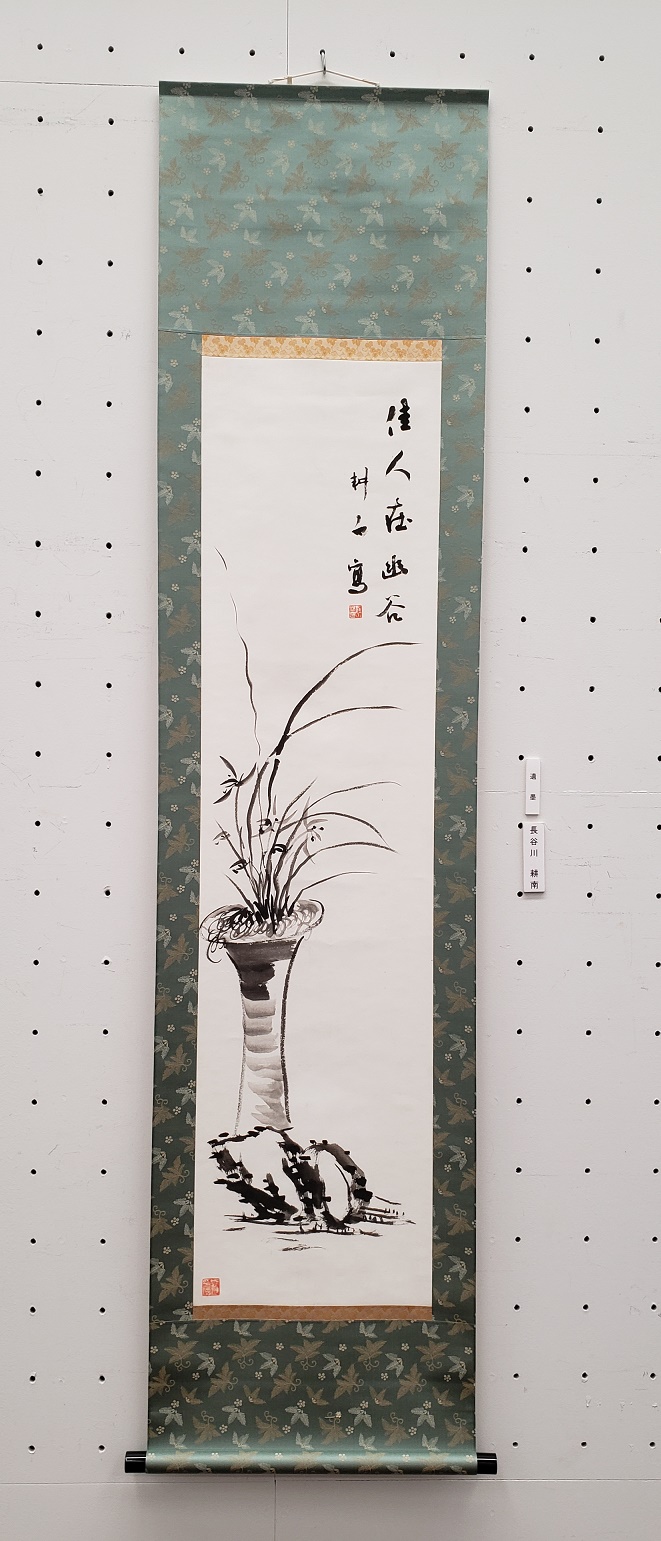 佳人在幽谷
耕石寫
遺墨
長谷川 耕南